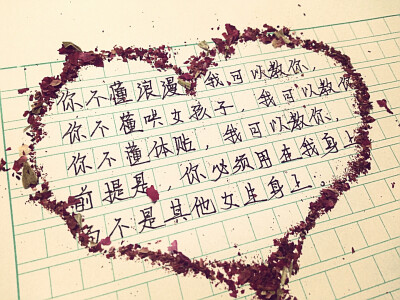 你不懂浪漫，我可以教你，
你不懂哄女孩子，我可以教你
你不懂体贴，我可以教你，
前提是，你必须用在我身上
而不是其他女生身上